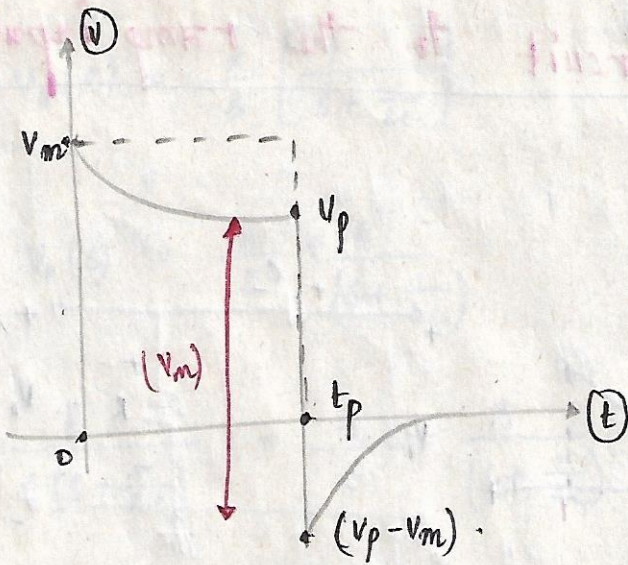 V
Vm
Vp
(Vm)
tp
t
0
(Vp-Vm).